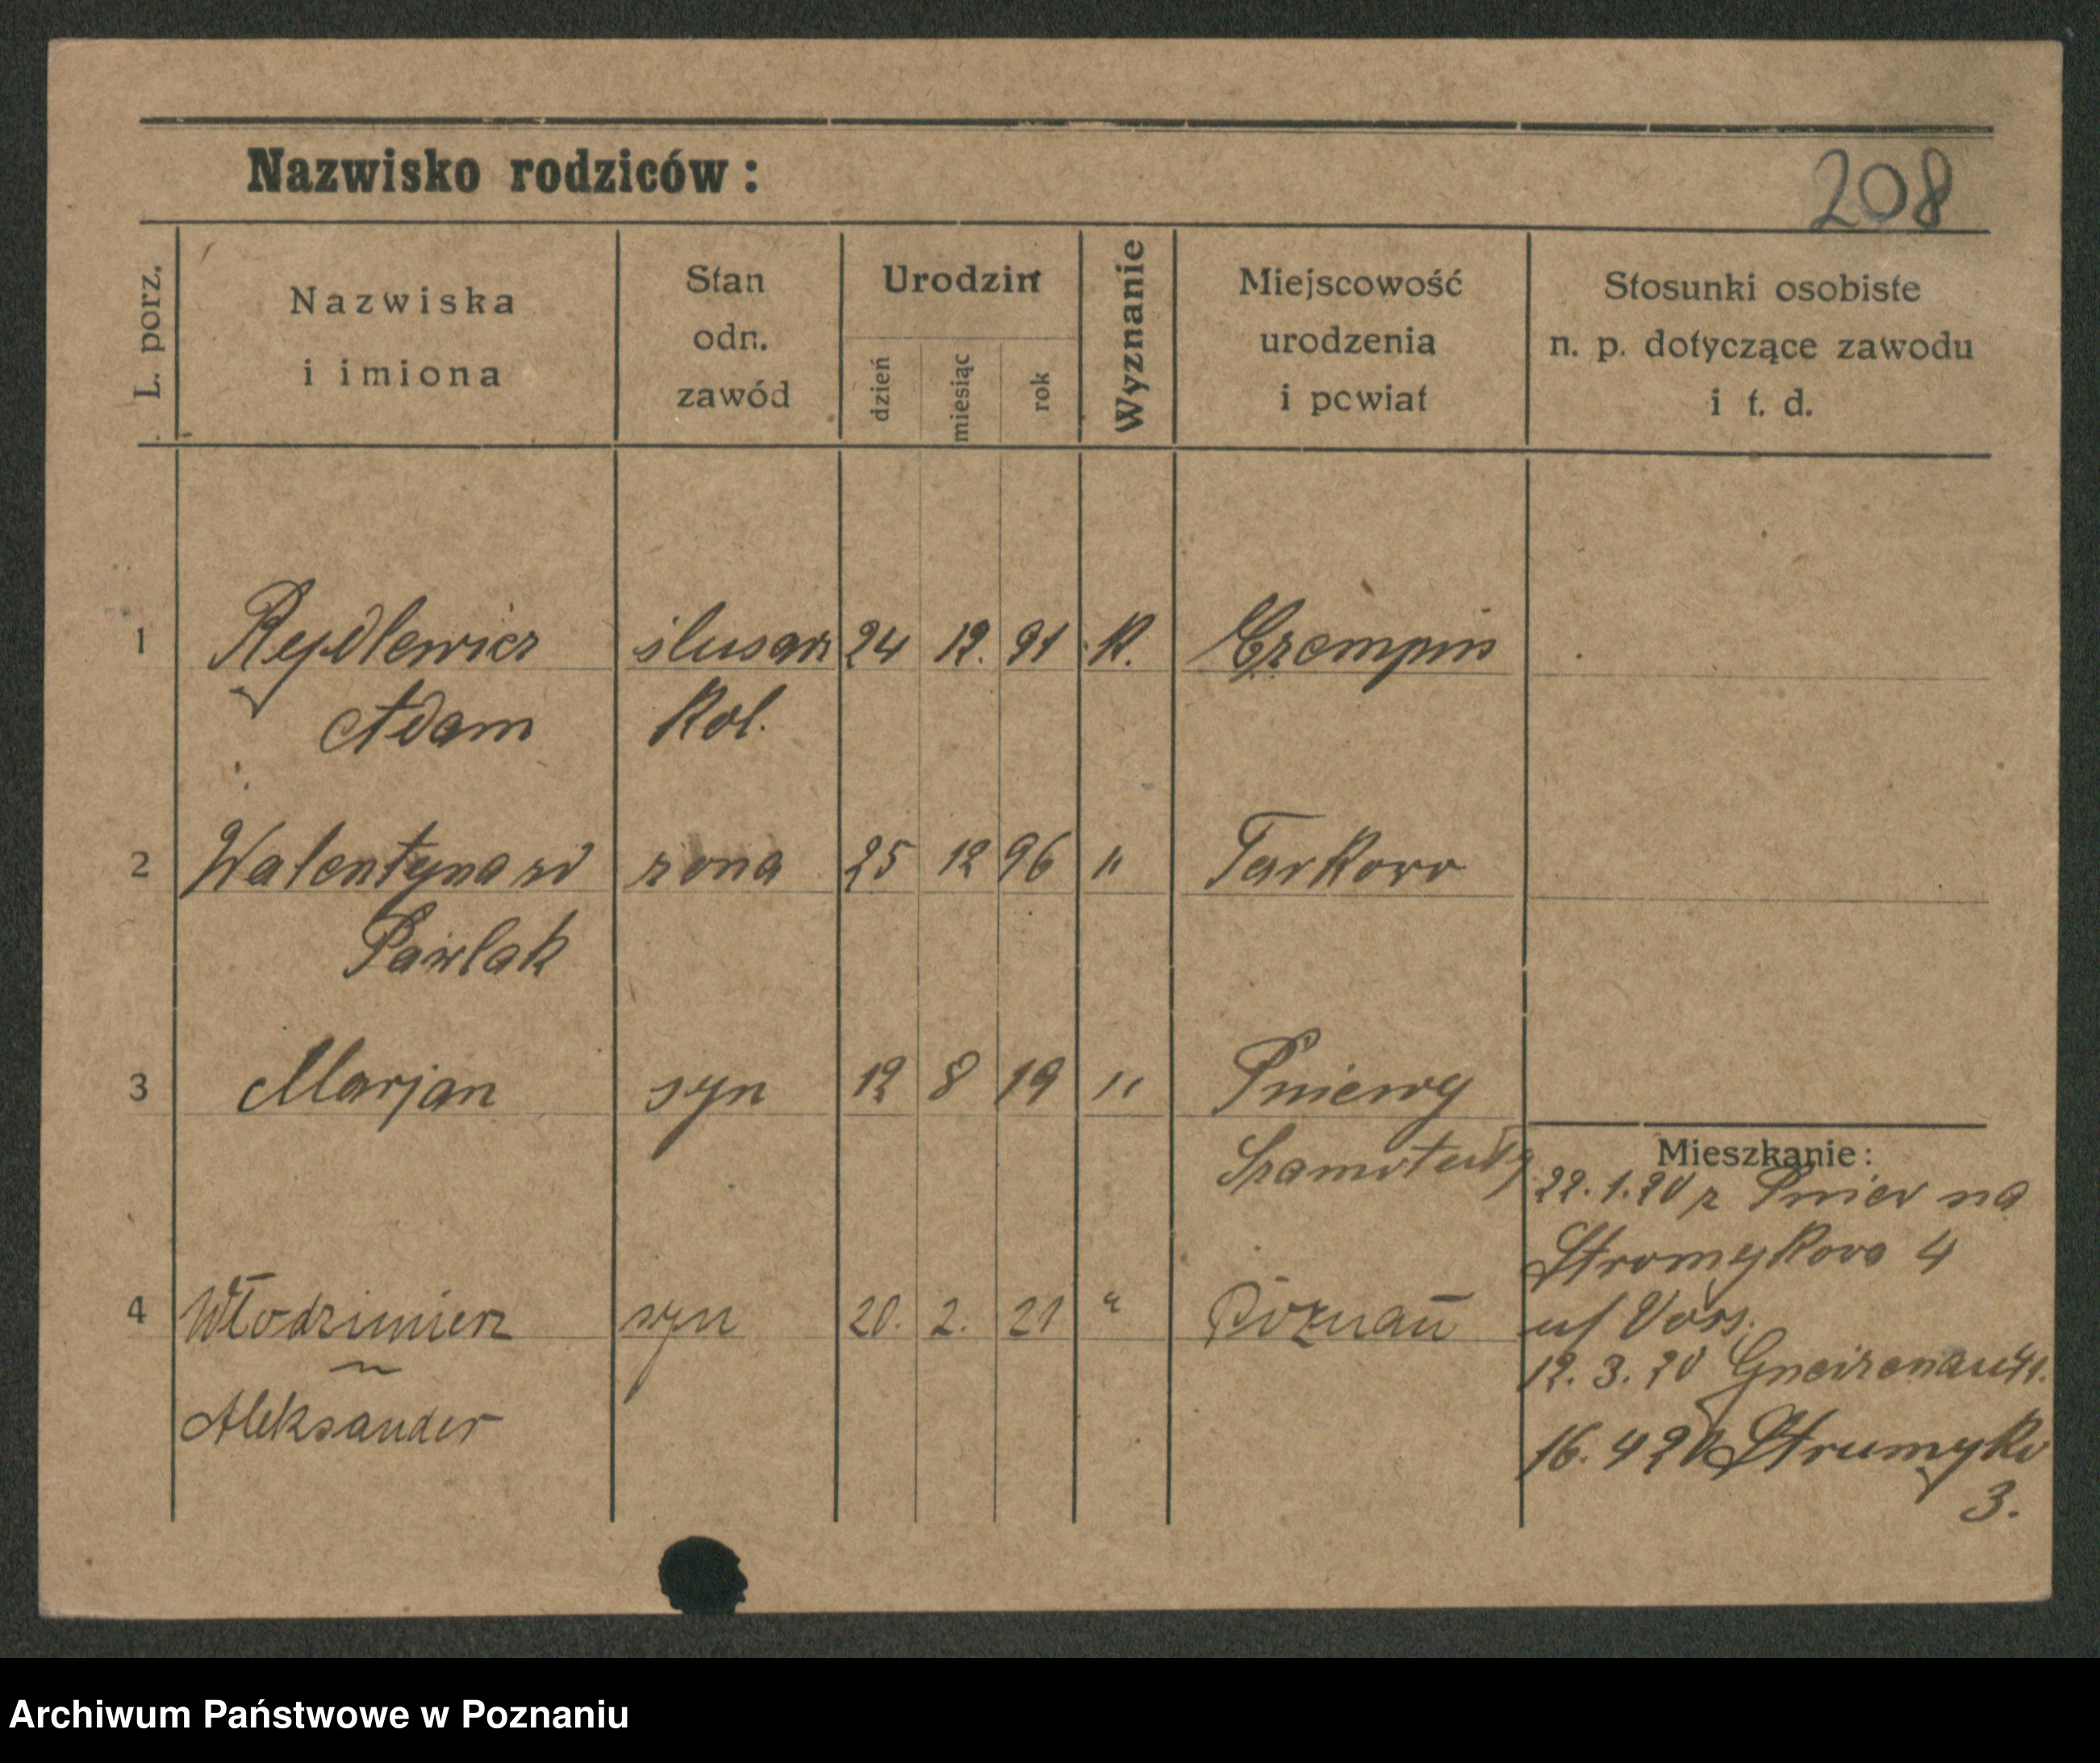 208
Nazwisko rodziców:
L. porz.
Nazwiska
i imiona
Stan
odn.
zawód
Urodzin
dzień
miesiąc
rok
Wyznanie
Miejscowość
urodzenia
i powiat
Stosunki osobiste
n. p. dotyczące zawodu
i t. d.
1 Rejdlewicz ślusarz 24 12. 91 K. Czempin
Adam Kol.
2 Walentyna zd żona 25 12 96 " Tarkowo
Pawlak
3 Marjan syn 12 8 19 " Pniewy
Szamotuły
Mieszkanie:
22.1.20 z Pniew na
Stromykowa 4
u/ Voss.
4 Włodzimierz syn 20. 2. 21 " Poznań
12. 3. 20 Gneizenaustr.
Aleksander
16. 4 20 Strumyko
3.
Archiwum Państwowe w Poznaniu